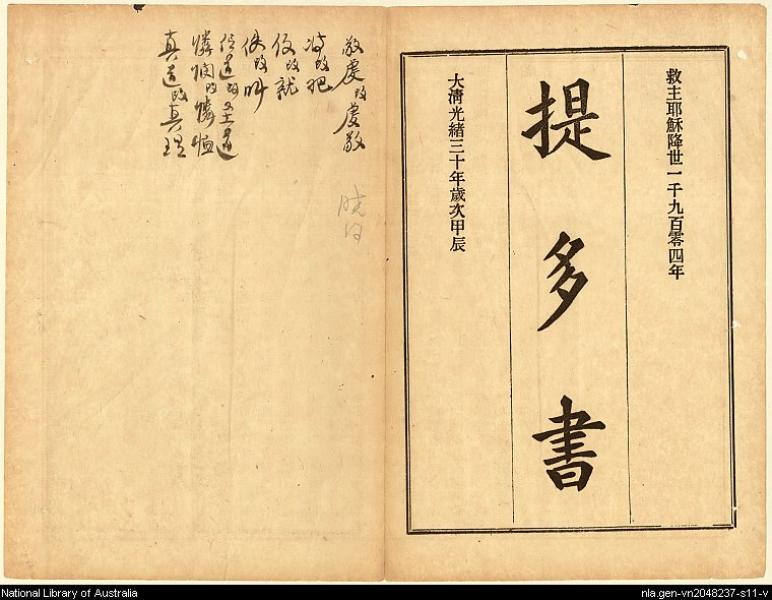 救主耶穌降世一千九百零四年
提多書
大清光緒三十年歲次甲辰
敬虔改虔敬
將改把
改就
使改叫
憐憫改憐恤
真道改真理
National Library of Australia
nla.gen-vn2048237-s11-v